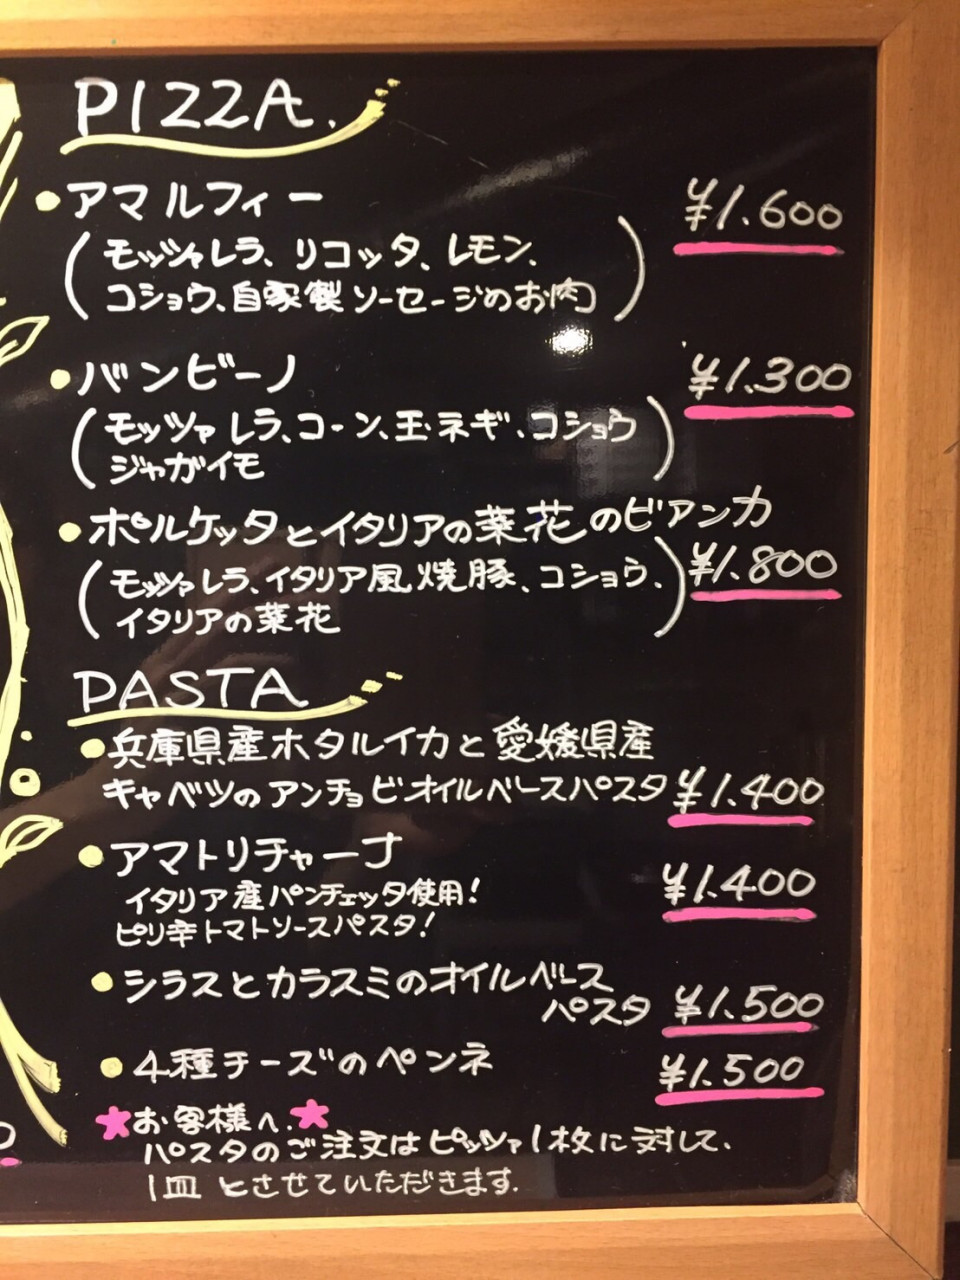 PIZZA.
・アマルフィー ¥1.600
(モッツァレラ、リコッタ、レモン、
コショウ、自家製ソーセージのお肉)
・バンビーノ ¥1.300
(モッツァレラ、コーン、玉ネギ、コショウ
ジャガイモ)
・ポルケッタとイタリアの菜花のビアンカ
(モッツァレラ、イタリア風焼豚、コショウ、 ¥1.800
イタリアの菜花)
PASTA
・兵庫県産ホタルイカと愛媛県産
キャベツのアンチョビオイルベースパスタ ¥1.400
・アマトリチャーナ ¥1.400
イタリア産パンチェッタ使用!
ピリ辛トマトソースパスタ!
・シラスとカラスミのオイルベース
パスタ ¥1.500
・4種チーズのペンネ ¥1.500
★お客様へ.★
パスタのご注文はピッツァ1枚に対して、
1皿とさせていただきます.